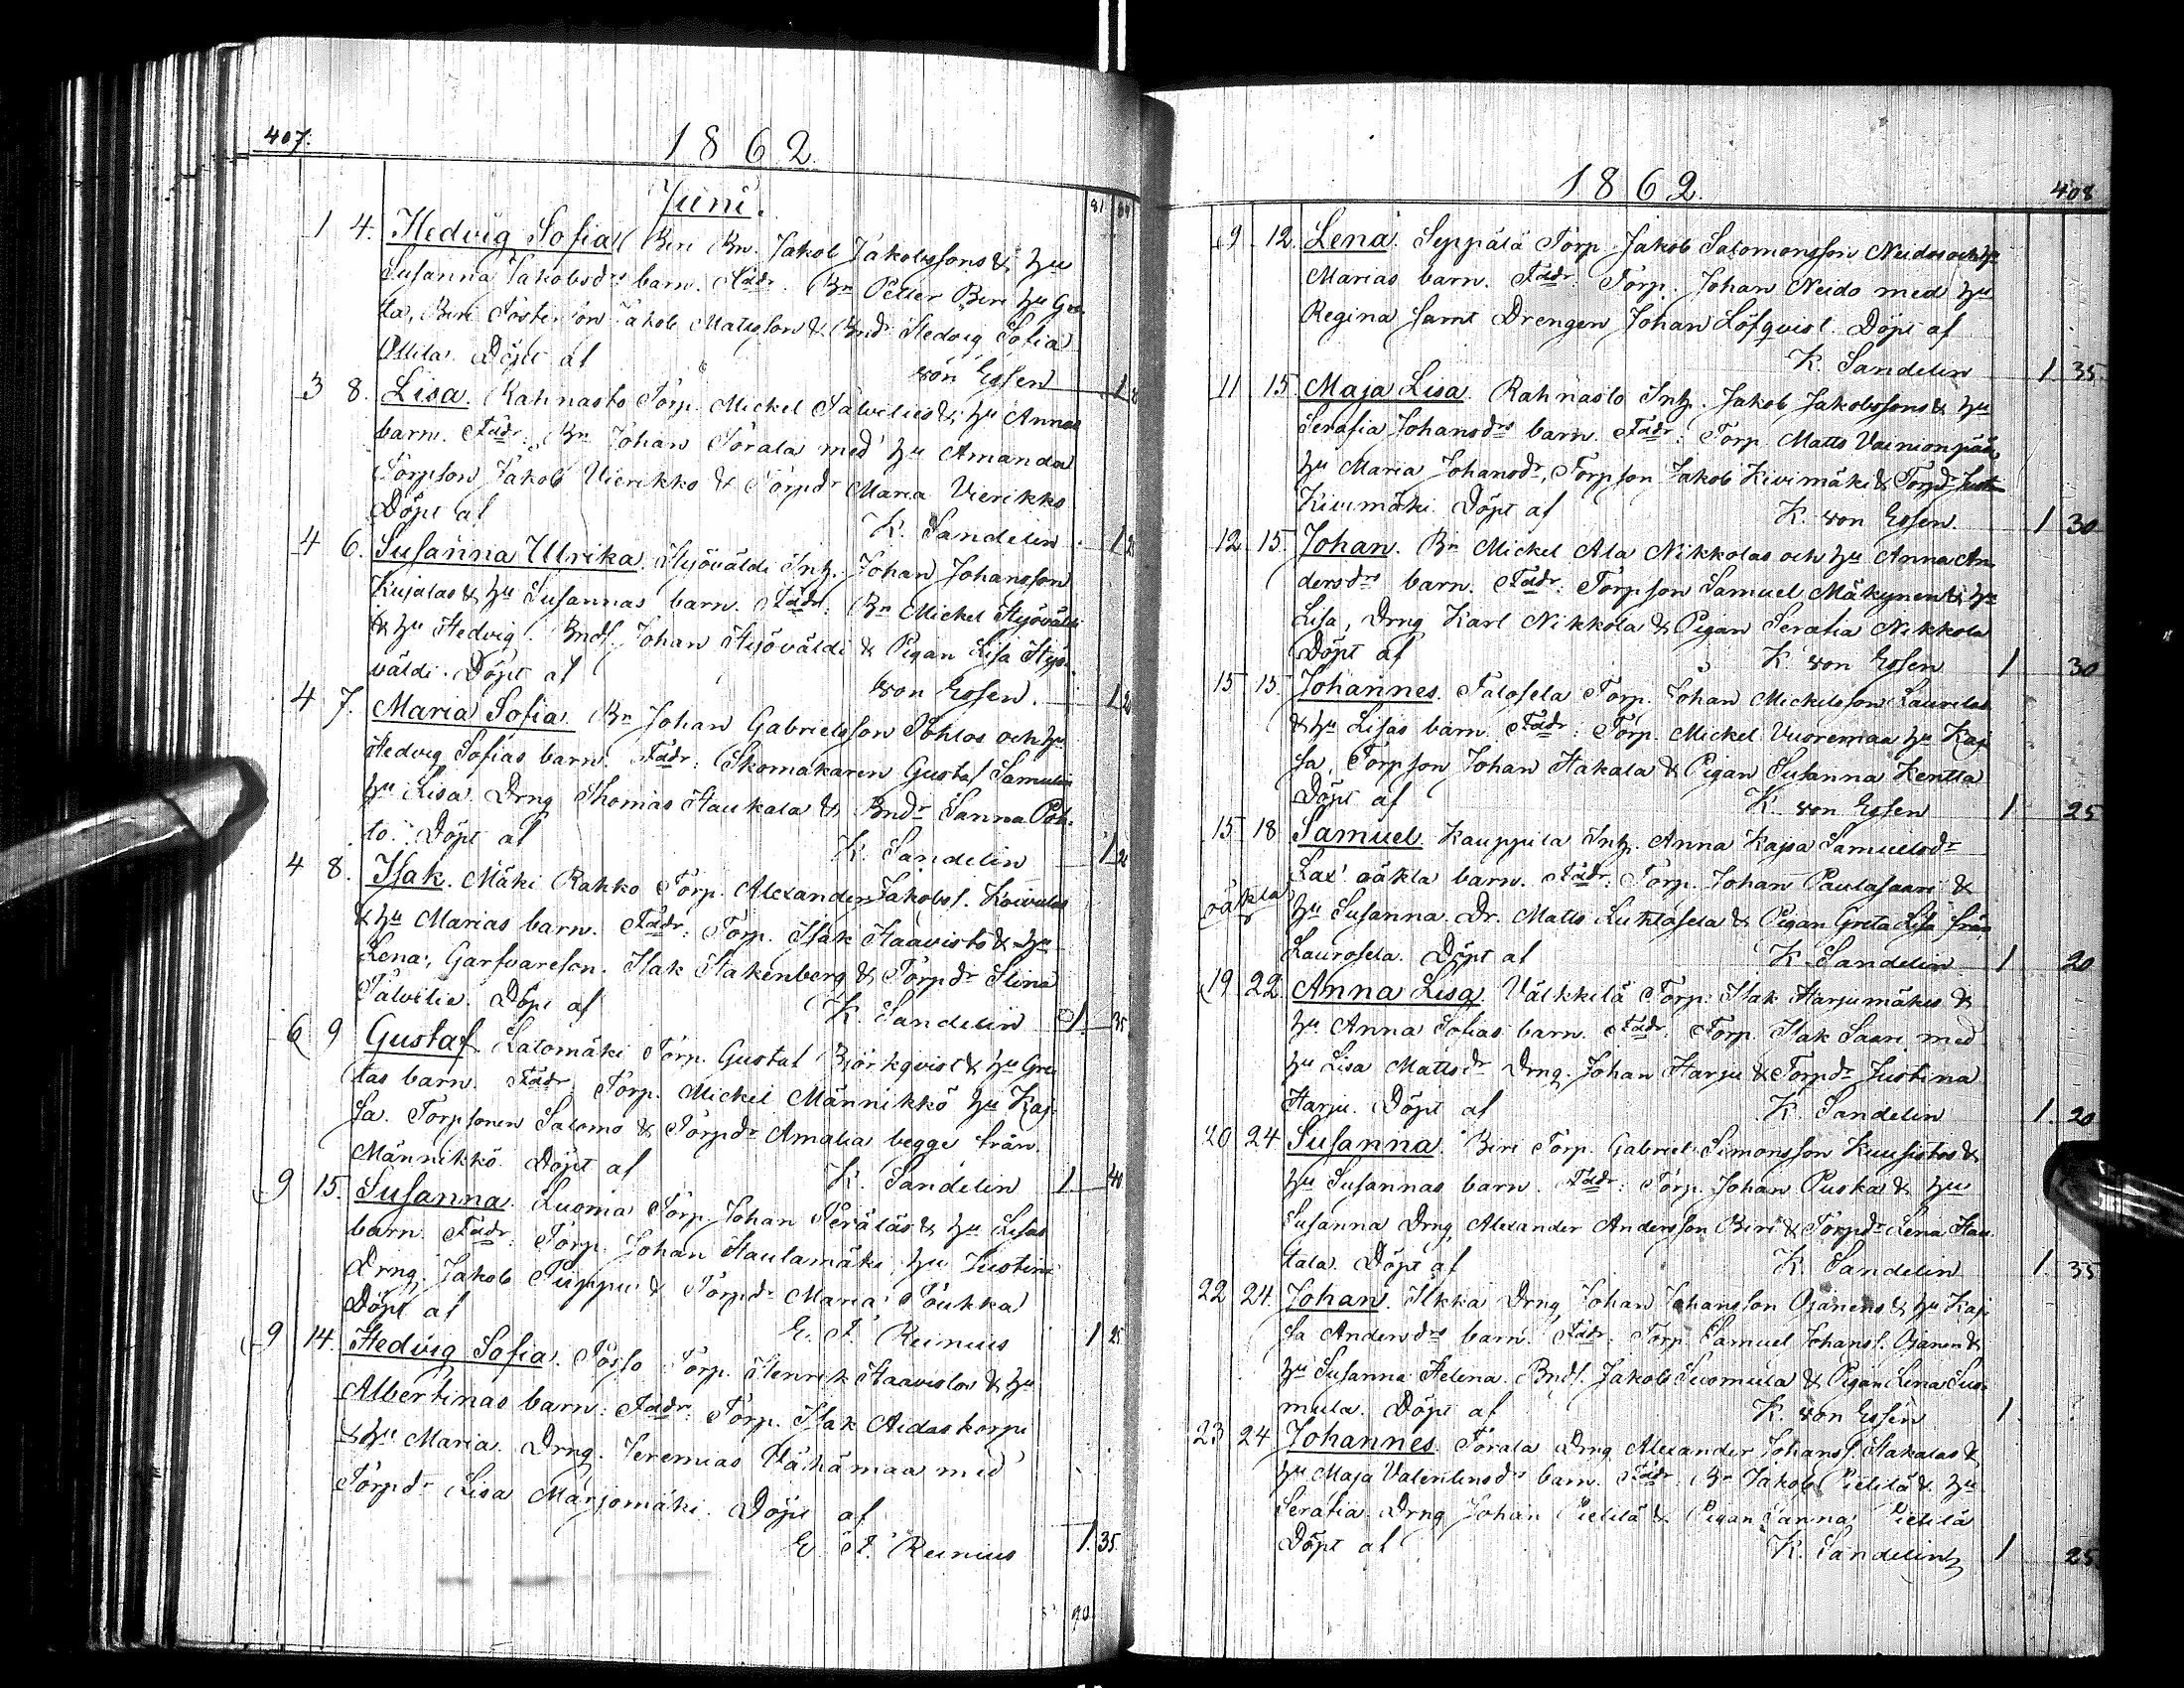 407.
1862.
Juni.
1 4. Hedvig Sofia Beri Bn. Jakob Jakobssons & hu
Susanna Jakobsdrs barn. Faddr. Bn Petter Beri hu Gre
ta, Beri Fosterson Jakob Mattsson & Bndr Hedvig Sofia
Ollila. Döpt af von Essen 1
3 8. Lisa. Rahnasto Torp. Mickel Talvities & hu Annas
barn. Faddr: Bn Johan Torala med hu Amanda
Torpson Jakob Vierikko & Torpdr Maria Vierikko
Döpt af K. Sandelin 1 25
4 6. Susanna Ulrika. Hyöväldi Inh. Johan Johansson
Kujalas & hu Susannas barn. Faddr: Bn Mickel Hyöväldi
& hu Hedvig. Bnds. Johan Hyöväldi & Pigan Lisa Hyö-
väldi. Döpt af von Essen. 1 2
4 7. Maria Sofia. Bn Johan Gabrielsson Pohtos och hu
Hedvig Sofias barn. Faddr: Skomakaren Gustaf Samulin
hu Lisa Drng Thomas Haukala & Bndr Sanna Poh-
to. Döpt af K. Sandelin 1 2
4 8. Isak. Mäki Rahko Torp. Alexander Jakobs. Koivulas
& hu Marias barn. Faddr: Torp. Isak Haavisto & hu
Lena, Garfvareson. Isak Hakenberg & Torpdr Stina
Talvitie. Döpt af K. Sandelin 1. 35
6 9 Gustaf Latomäki Torp. Gustaf Björkqvist & hu Gre
tas barn. Faddr. Torp. Mickel Männikkö hu Kaj-
sa. Torpsonen Salomo & Torpdr Amalia begge från
Männikkö. Döpt af K. Sandelin 1. 40
9 15. Susanna. Luoma Torp. Johan Peräläs & hu Lisas
barn. Faddr: Torp. Johan Hautamäki hu Justina
Drng. Jakob Puppu & Torpdr Maria Poukka
Döpt af E. F. Reinius 1 25
9 14. Hedvig Sofia. Posso Torp. Henrik Haavistos & hu
Albertinas barn: Faddr: Torp. Isak Aidaskorpi
& hu Maria. Drng. Jeremias Vähämaa med
Torpdr Lisa Marjomäki. Döpt af
E. F. Reinius 1. 35.
1862.
408
9 12. Lena. Seppälä Torp. Jakob Salomonsson Neidos och hu
Marias barn. Faddr: Torp. Johan Neido med hu
Regina samt Drengen Johan Löfqvist. Döpt af
K. Sandelin 1. 35
11 15. Maja Lisa. Rahnasto Inh. Jakob Jakobssons & hu
Serafia Johansdrs barn. Faddr: Torp. Matts Vainionpää
hu Maria Johansdr, Torpson Jakob Kivimäki & Torpdr
Kivimäki. Döpt af K. von Essen. 1 30
12 15. Johan. Bn Mickel Ala Nikkolas och hu Anna An-
dersdrs barn. Faddr: Torpson Samuel Mäkynen & hu
Lisa, Drng Karl Nikkola & Pigan Serafia Nikkola
Döpt af K. von Essen 1 30
15 15. Johannes. Talosela Torp. Johan Mickelsson Laurilas
& hu Lisas barn. Faddr: Torp. Mickel Vuorenmaa hu Kaj
sa, Torpson Johan Hakala & Pigan Susanna Kentta
Döpt af K. von Essen 1 25
15 18 Samuel. Kauppila Inh. Anna Kajsa Samuelsdr
Lax' oäkta barn. Faddr: Torp. Johan Paulasaari &
oäkta hu Susanna. Dr. Matts Luhtasela & Pigan Greta Lisa från
Laurosela. Döpt af K. Sandelin 1 20
19 22. Anna Lisa. Välkkilä Torp. Isak Harjumäkis &
hu Anna Sofias barn. Faddr: Torp. Isak Saari med
hu Lisa Mattsdr Drng. Johan Harju & Torpdr Justina
Harju. Döpt af K. Sandelin 1. 20
20 24. Susanna. Beri Torp. Gabriel Simonsson Kuusistos &
hu Susannas barn. Faddr: Torp. Johan Puska & hu
Susanna Drng Alexander Andersson Beri & Torpdr Lena Hau
tala. Döpt af K. Sandelin 1. 35
22 24. Johan. Ilkka Drng Johan Johansson Ojanens & hu Kaj
sa Andersdrs barn. Faddr: Torp. Samuel Johans. Ojanen &
hu Susanna Helena. Bnds. Jakob Luomula & Pigan Lena Luo-
mula. Döpt af K. von Essen 1.
23 24 Johannes. Torala Drng Alexander Johans. Hakalas &
hu Maja Valentinsdrs barn. Faddr: Bn Jakob Pietilä & hu
Serafia. Drng Johan Pietilä & Pigan Sanna Pietilä
Döpt af K. Sandelin 1 25